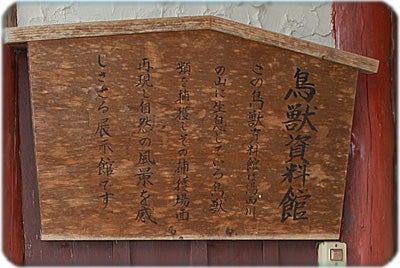 鳥獣資料館
この鳥獣資料館は湯西川
の山に生息している鳥獣
類を捕獲しその捕獲場面
再現し自然の風景を感
じさせる展示館です